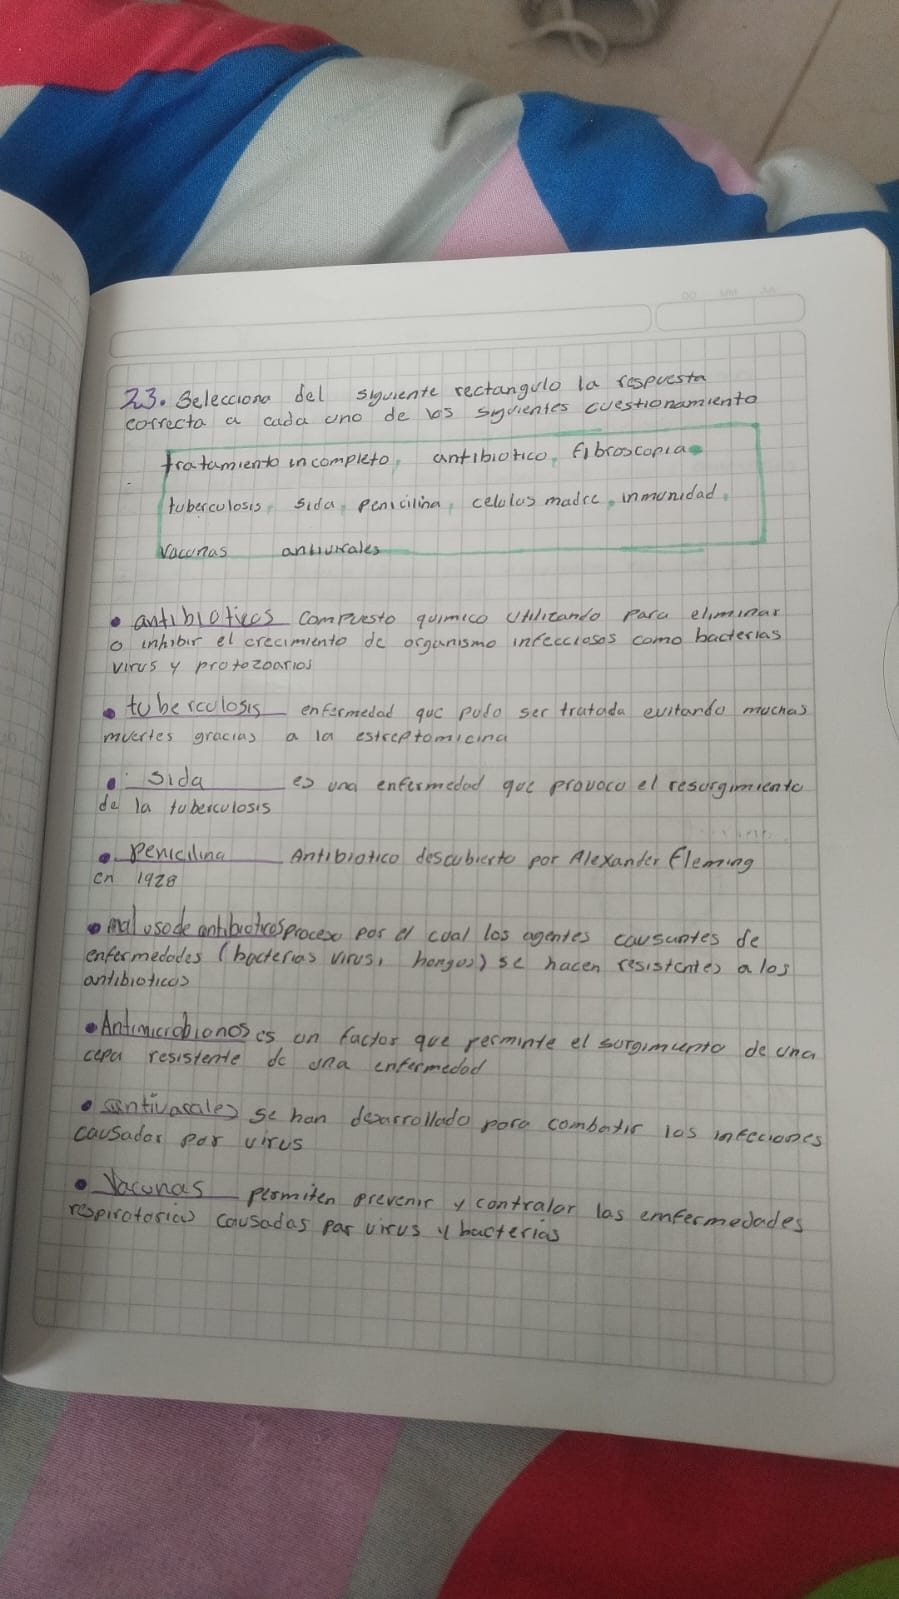 23. Selecciona del siguiente rectangulo la respuesta
correcta a cada uno de los siguientes cuestionamiento
tratamiento incompleto, antibiotico, fibroscopia
tuberculosis, sida, penicilina, celulas madre, inmunidad,
Vacunas antivirales
• antibioticos compuesto quimico utilizando para eliminar
o inhibir el crecimiento de organismo infecciosos como bacterias
virus y protozoarios
• tuberculosis enfermedad que pudo ser tratada evitando muchas
muertes gracias a la estreptomicina
• sida es una enfermedad que provoco el resurgimiento
de la tuberculosis
• penicilina Antibiotico descubierto por Alexander Fleming
en 1928
• mal uso de antibioticos proceso por el cual los agentes causantes de
enfermedades (bacterias virus, hongos) se hacen resistentes a los
antibioticos
• Antimicrobionos es un factor que perminte el surgimiento de una
cepa resistente de una enfermedad
• antivarales se han desarrollado para combatir las infeciones
causador por virus
• Vacunas permiten prevenir y contralar las emfermedades
respiratorias causadas por virus y bacterias